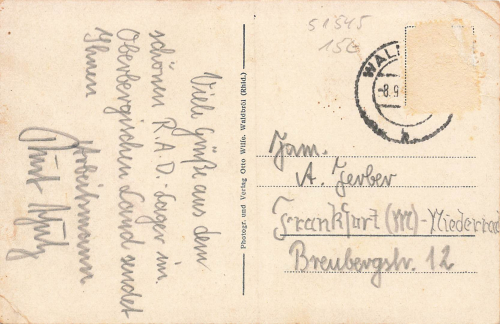 51545
15€
Viele Grüße aus dem
schönen R.A.D.-Lager im
Oberbergischen Land sendet
Ihnen
Arbeitsmann
Kurt
Photogr. und Verlag Otto Wille, Waldbröl (Rhld.)
WAL
-8.9
Fam.
A. Zerber
Frankfurt (M)-Niederrad
Breubergstr. 12